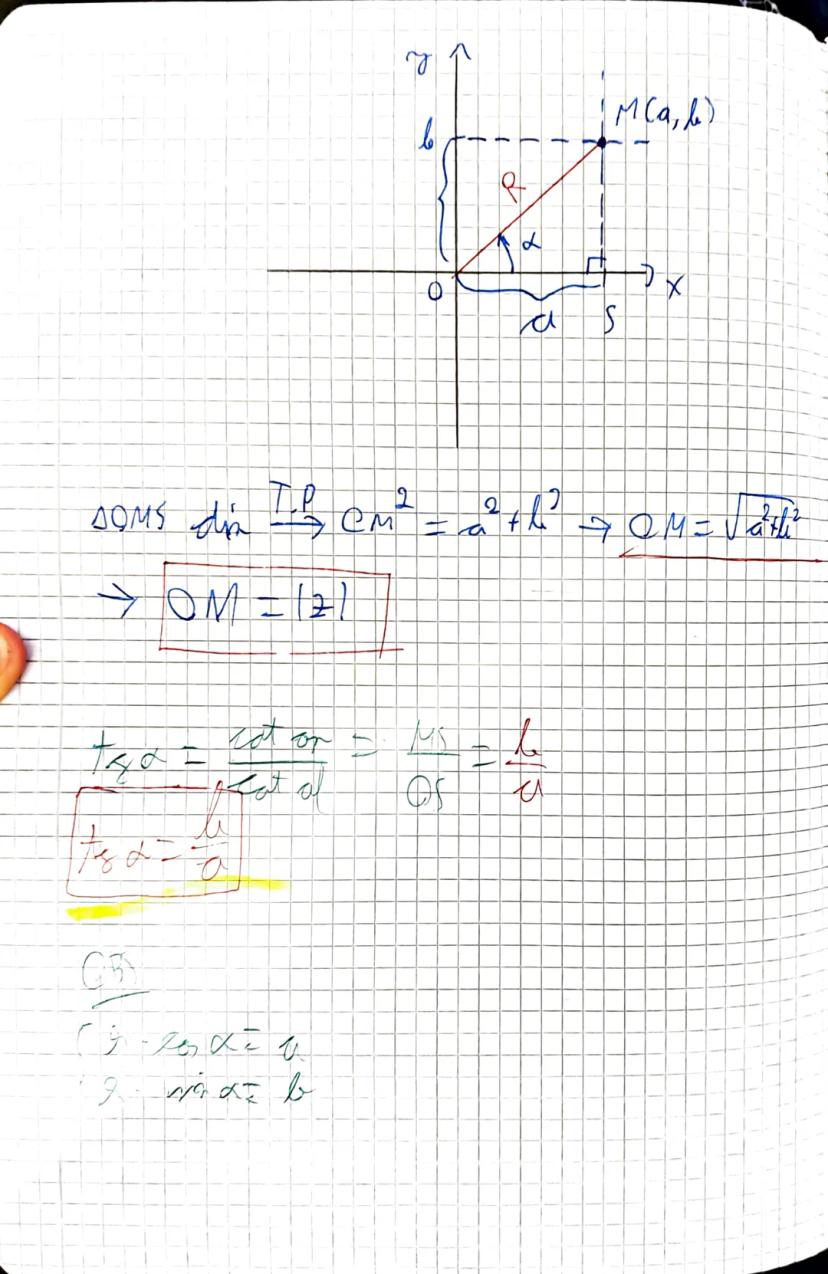 y
M(a, b)
b
R
α
O
x
a
S
ΔOMS din T.P → OM² = a² + b² → OM = √a²+b²
→ OM = |z|
tg α = cat op / cat al = MS / OS = b / a
tg α = b / a
cos α = a
sin α = b